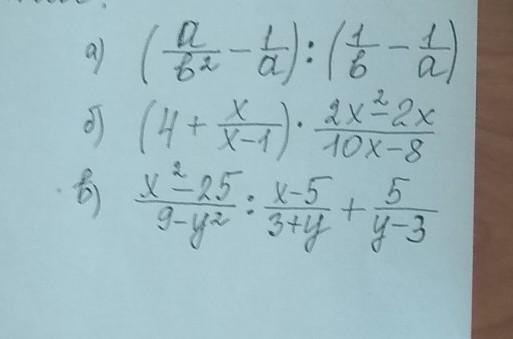 а) (a/b² − 1/a) : (1/b − 1/a)
б) (4 + x/(x−1)) · (2x²−2x)/(10x−8)
в) (x²−25)/(9−y²) : (x−5)/(3+y) + 5/(y−3)